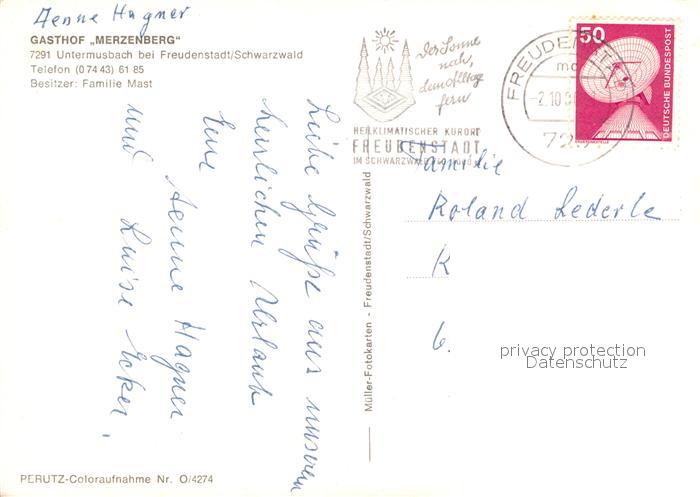 Aenne Hagner
GASTHOF „MERZENBERG“
7291 Untermusbach bei Freudenstadt/Schwarzwald
Telefon (0 74 43) 61 85
Besitzer: Familie Mast
Liebe Grüße aus unserem
herrlichen Urlaub
Eure
Aenne Hagner
und Luise Ecker.
PERUTZ-Coloraufnahme Nr. O/4274
Müller-Fotokarten - Freudenstadt/Schwarzwald
Der Sonne
nah,
dem Alltag
fern
HEILKLIMATISCHER KURORT
FREUDENSTADT
IM SCHWARZWALD
FREUDENSTADT
-2.10.
50
DEUTSCHE BUNDESPOST
ERDEFUNKSTELLE
Familie
Roland Lederle
K
6.
privacy protection
Datenschutz